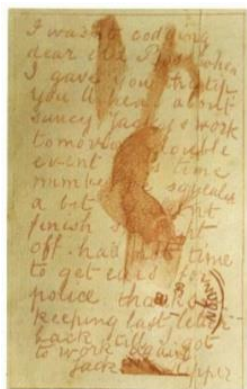 I was not codding
dear old Boss when
I gave you the tip
you'll hear about
saucy Jacky s work
tomorrow double
event this time
number one squealed
a bit couldnt
finish straight
off. had not time
to get ears for
police thanks for
keeping last letter
back till I got
to work again
Jack the Ripper